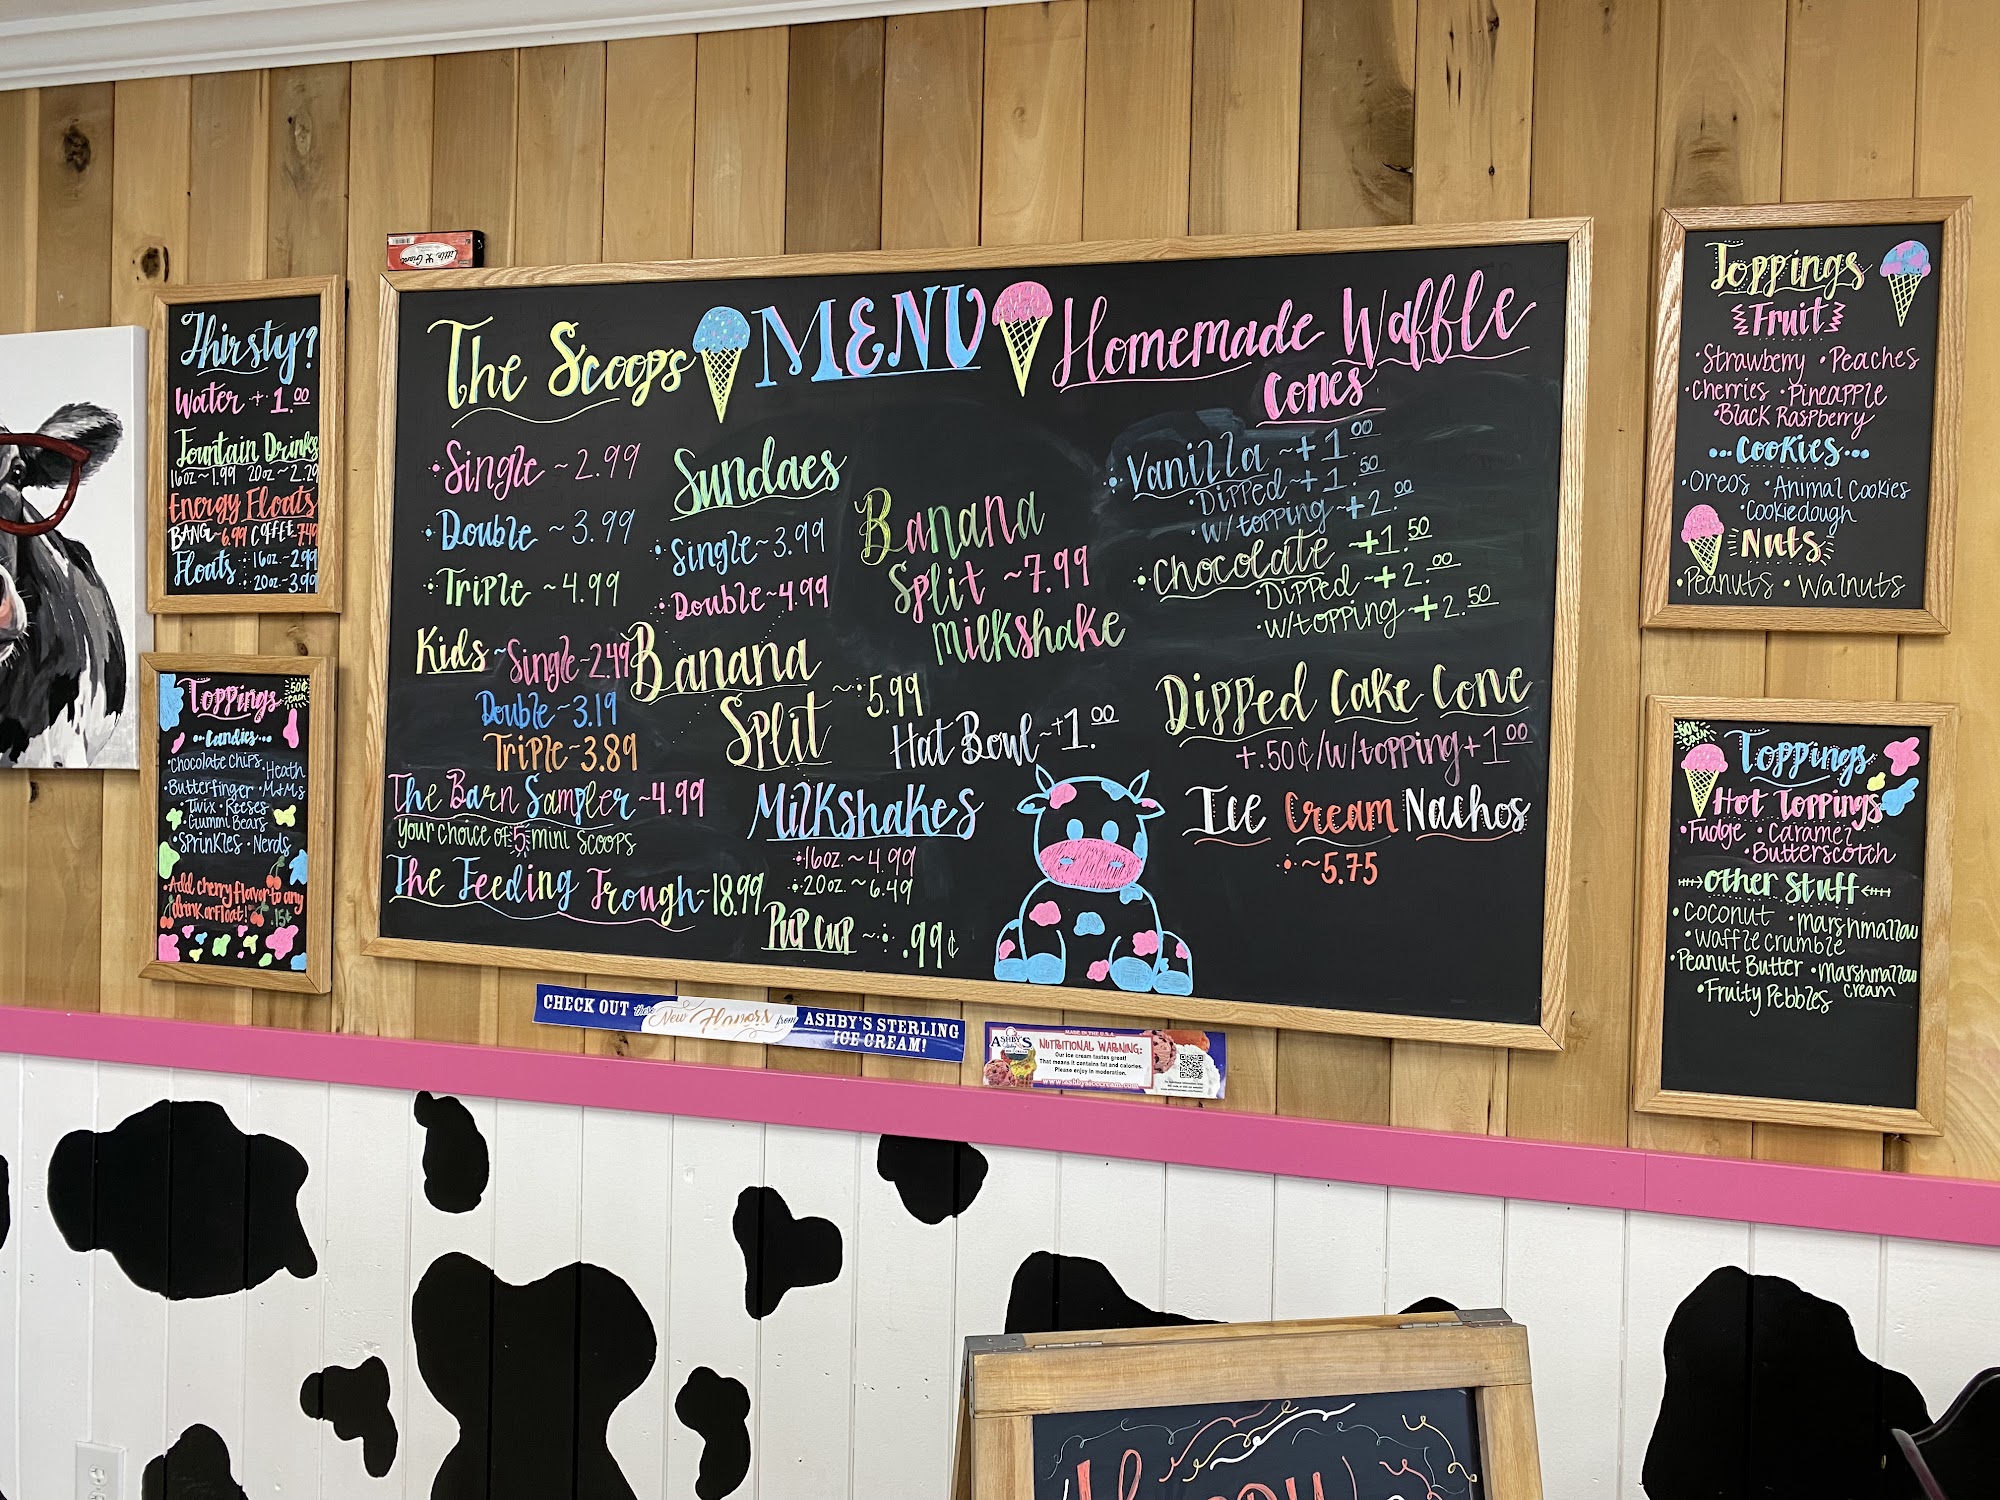 Thirsty?
Water + 1.00
Fountain Drinks
16oz~1.99 20oz~2.29
Energy Floats
BANG~6.99 C4fft 7.49
Floats : 16oz~2.99
: 20oz~3.99
Toppings 50¢ each
Candies
Chocolate Chips
Heath
Butterfinger • M+Ms
Twix • Reeses
Gummi Bears
Sprinkles • Nerds
Add cherry flavor to any
drink or float! .15¢
Little Giant
The Scoops
Single ~ 2.99
Double ~ 3.99
Triple ~ 4.99
Kids ~ Single ~ 2.49
Double ~ 3.19
Triple ~ 3.89
The Barn Sampler ~ 4.99
your choice of 5 mini scoops
The Feeding Trough ~ 18.99
MENU
Sundaes
Single ~ 3.99
Double ~ 4.99
Banana
Split ~ 5.99
Banana
Split ~ 7.99
Milkshake
Hat Bowl ~ +1.00
Milkshakes
16oz. ~ 4.99
20oz. ~ 6.49
Pup cup ~ .99¢
Homemade Waffle
Cones
Vanilla ~ +1.00
Dipped ~ +1.50
w/topping ~ +2.00
Chocolate ~ +1.50
Dipped ~ +2.00
w/topping ~ +2.50
Dipped Cake Cone
+.50¢/w/topping +1.00
Ice Cream Nachos
~ 5.75
Toppings
Fruit
Strawberry • Peaches
Cherries • Pineapple
Black Raspberry
Cookies
Oreos • Animal Cookies
Cookiedough
Nuts
Peanuts • Walnuts
50¢ each
Toppings
Hot Toppings
Fudge • Caramel
Butterscotch
Other Stuff
Coconut • marshmallow
Waffle crumble
Peanut Butter • Marshmallow cream
Fruity Pebbles
CHECK OUT these New Flavors from ASHBY'S STERLING
ICE CREAM!
MADE IN THE U.S.A
ASHBY'S
NUTRITIONAL WARNING:
Our ice cream tastes great!
That means it contains fat and calories.
Please enjoy in moderation.
www.ashbysicecream.com